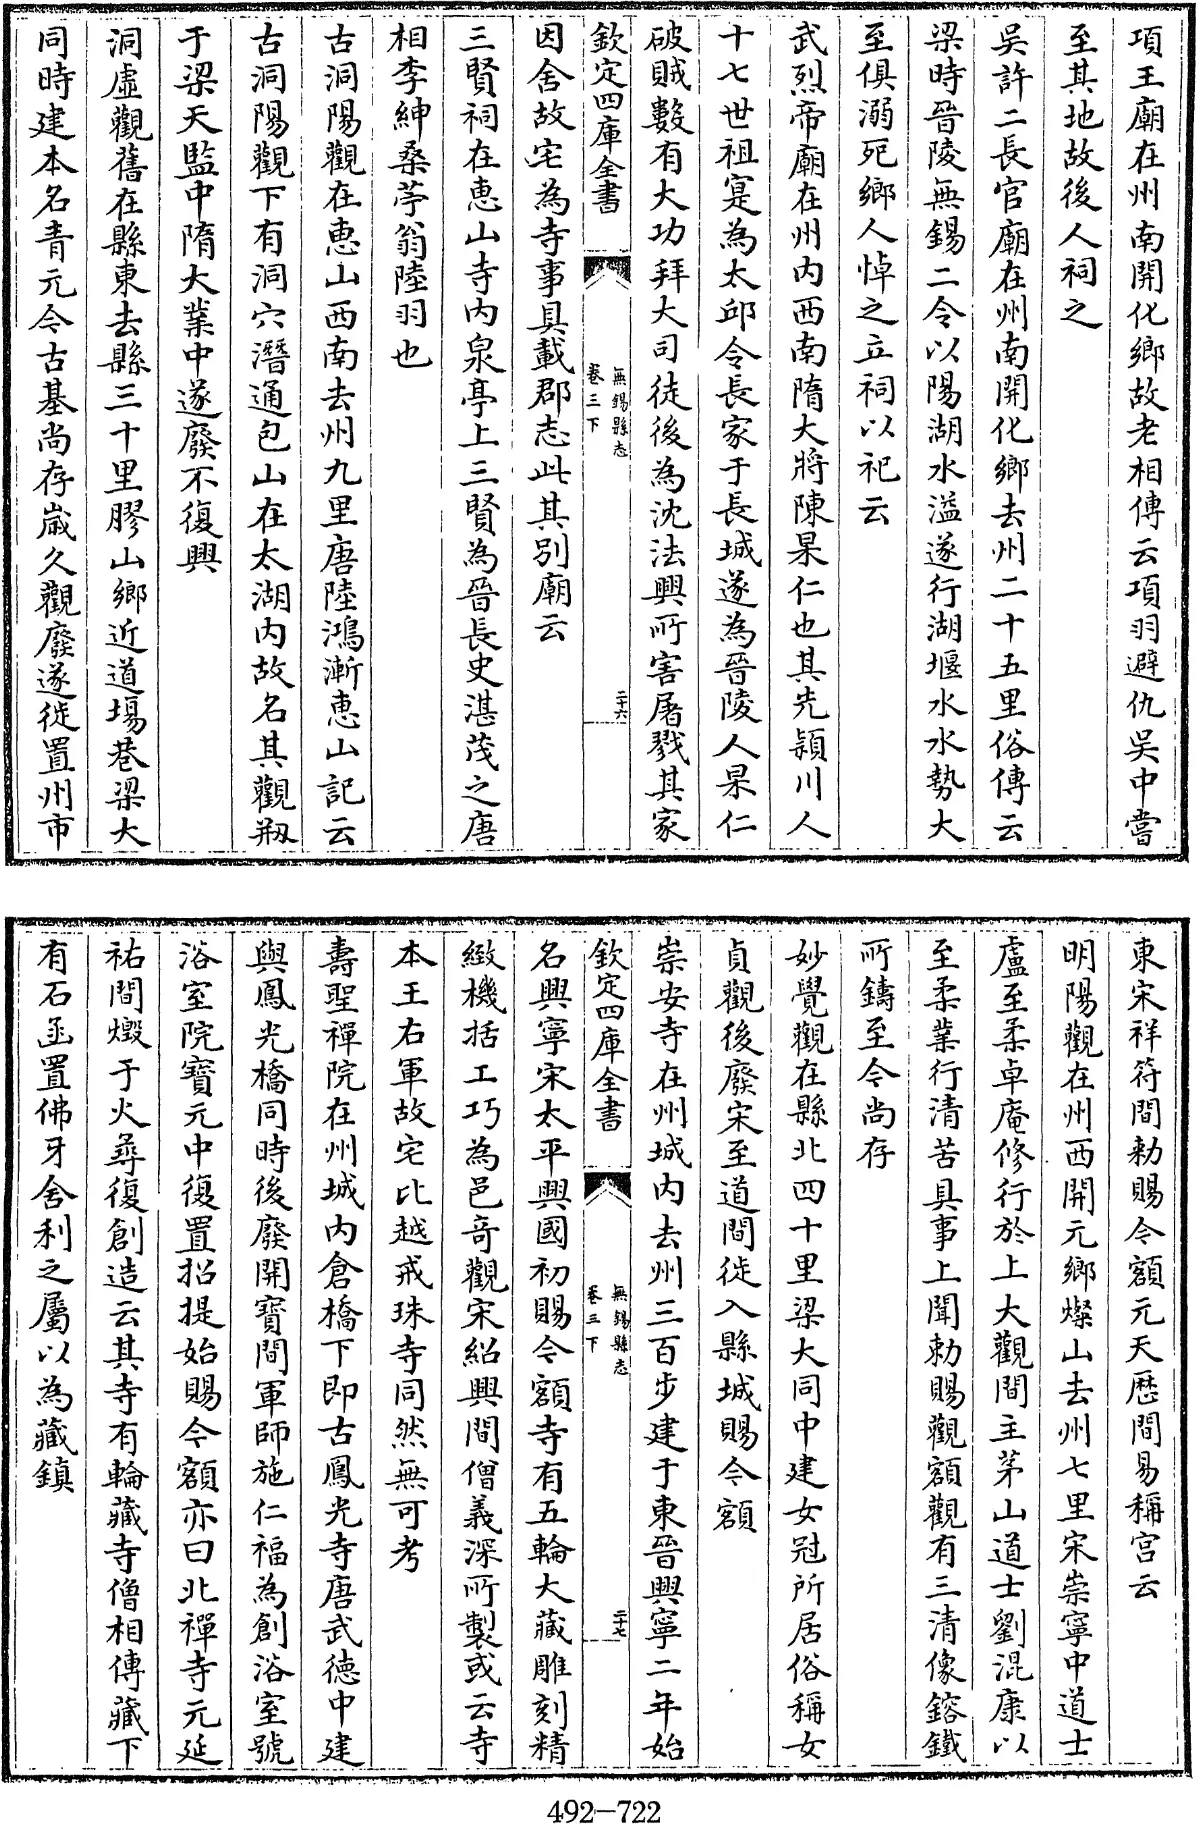 項王廟在州南開化鄉故老相傳云項羽避仇吳中嘗
至其地故後人祠之
吳許二長官廟在州南開化鄉去州二十五里俗傳云
梁時晉陵無錫二令以陽湖水溢遂行湖堰水水勢大
至俱溺死鄉人悼之立祠以祀云
武烈帝廟在州内西南隋大將陳杲仁也其先潁川人
十七世祖寔為太邱令長家于長城遂為晉陵人杲仁
破賊數有大功拜大司徒後為沈法興所害屠戮其家
欽定四庫全書
無錫縣志
卷三下
二十六
因舍故宅為寺事具載郡志此其别廟云
三賢祠在惠山寺内泉亭上三賢為晉長史湛茂之唐
相李紳桑苧翁陸羽也
古洞陽觀在惠山西南去州九里唐陸鴻漸惠山記云
古洞陽觀下有洞穴潛通包山在太湖内故名其觀剏
于梁天監中隋大業中遂廢不復興
洞虛觀舊在縣東去縣三十里膠山鄉近道場巷梁大
同時建本名青元今古基尚存嵗久觀廢遂徙置州市
東宋祥符間勅賜今額元天厯間易稱宫云
明陽觀在州西開元鄉燦山去州七里宋崇寧中道士
盧至柔卓庵修行於上大觀間主茅山道士劉混康以
至柔業行清苦具事上聞勅賜觀額觀有三清像鎔鐵
所鑄至今尚存
妙覺觀在縣北四十里梁大同中建女冠所居俗稱女
貞觀後廢宋至道間徙入縣城賜今額
崇安寺在州城内去州三百步建于東晉興寧二年始
欽定四庫全書
無錫縣志
卷三下
二十七
名興寧宋太平興國初賜今額寺有五輪大藏雕刻精
緻機括工巧為邑竒觀宋紹興間僧義深所製或云寺
本王右軍故宅比越戒珠寺同然無可考
壽聖禪院在州城内倉橋下即古鳳光寺唐武德中建
與鳳光橋同時後廢開寶間軍師施仁福為創浴室號
浴室院寶元中復置招提始賜今額亦曰北禪寺元延
祐間燬于火尋復創造云其寺有輪藏寺僧相傳藏下
有石函置佛牙舍利之屬以為藏鎮
492-722